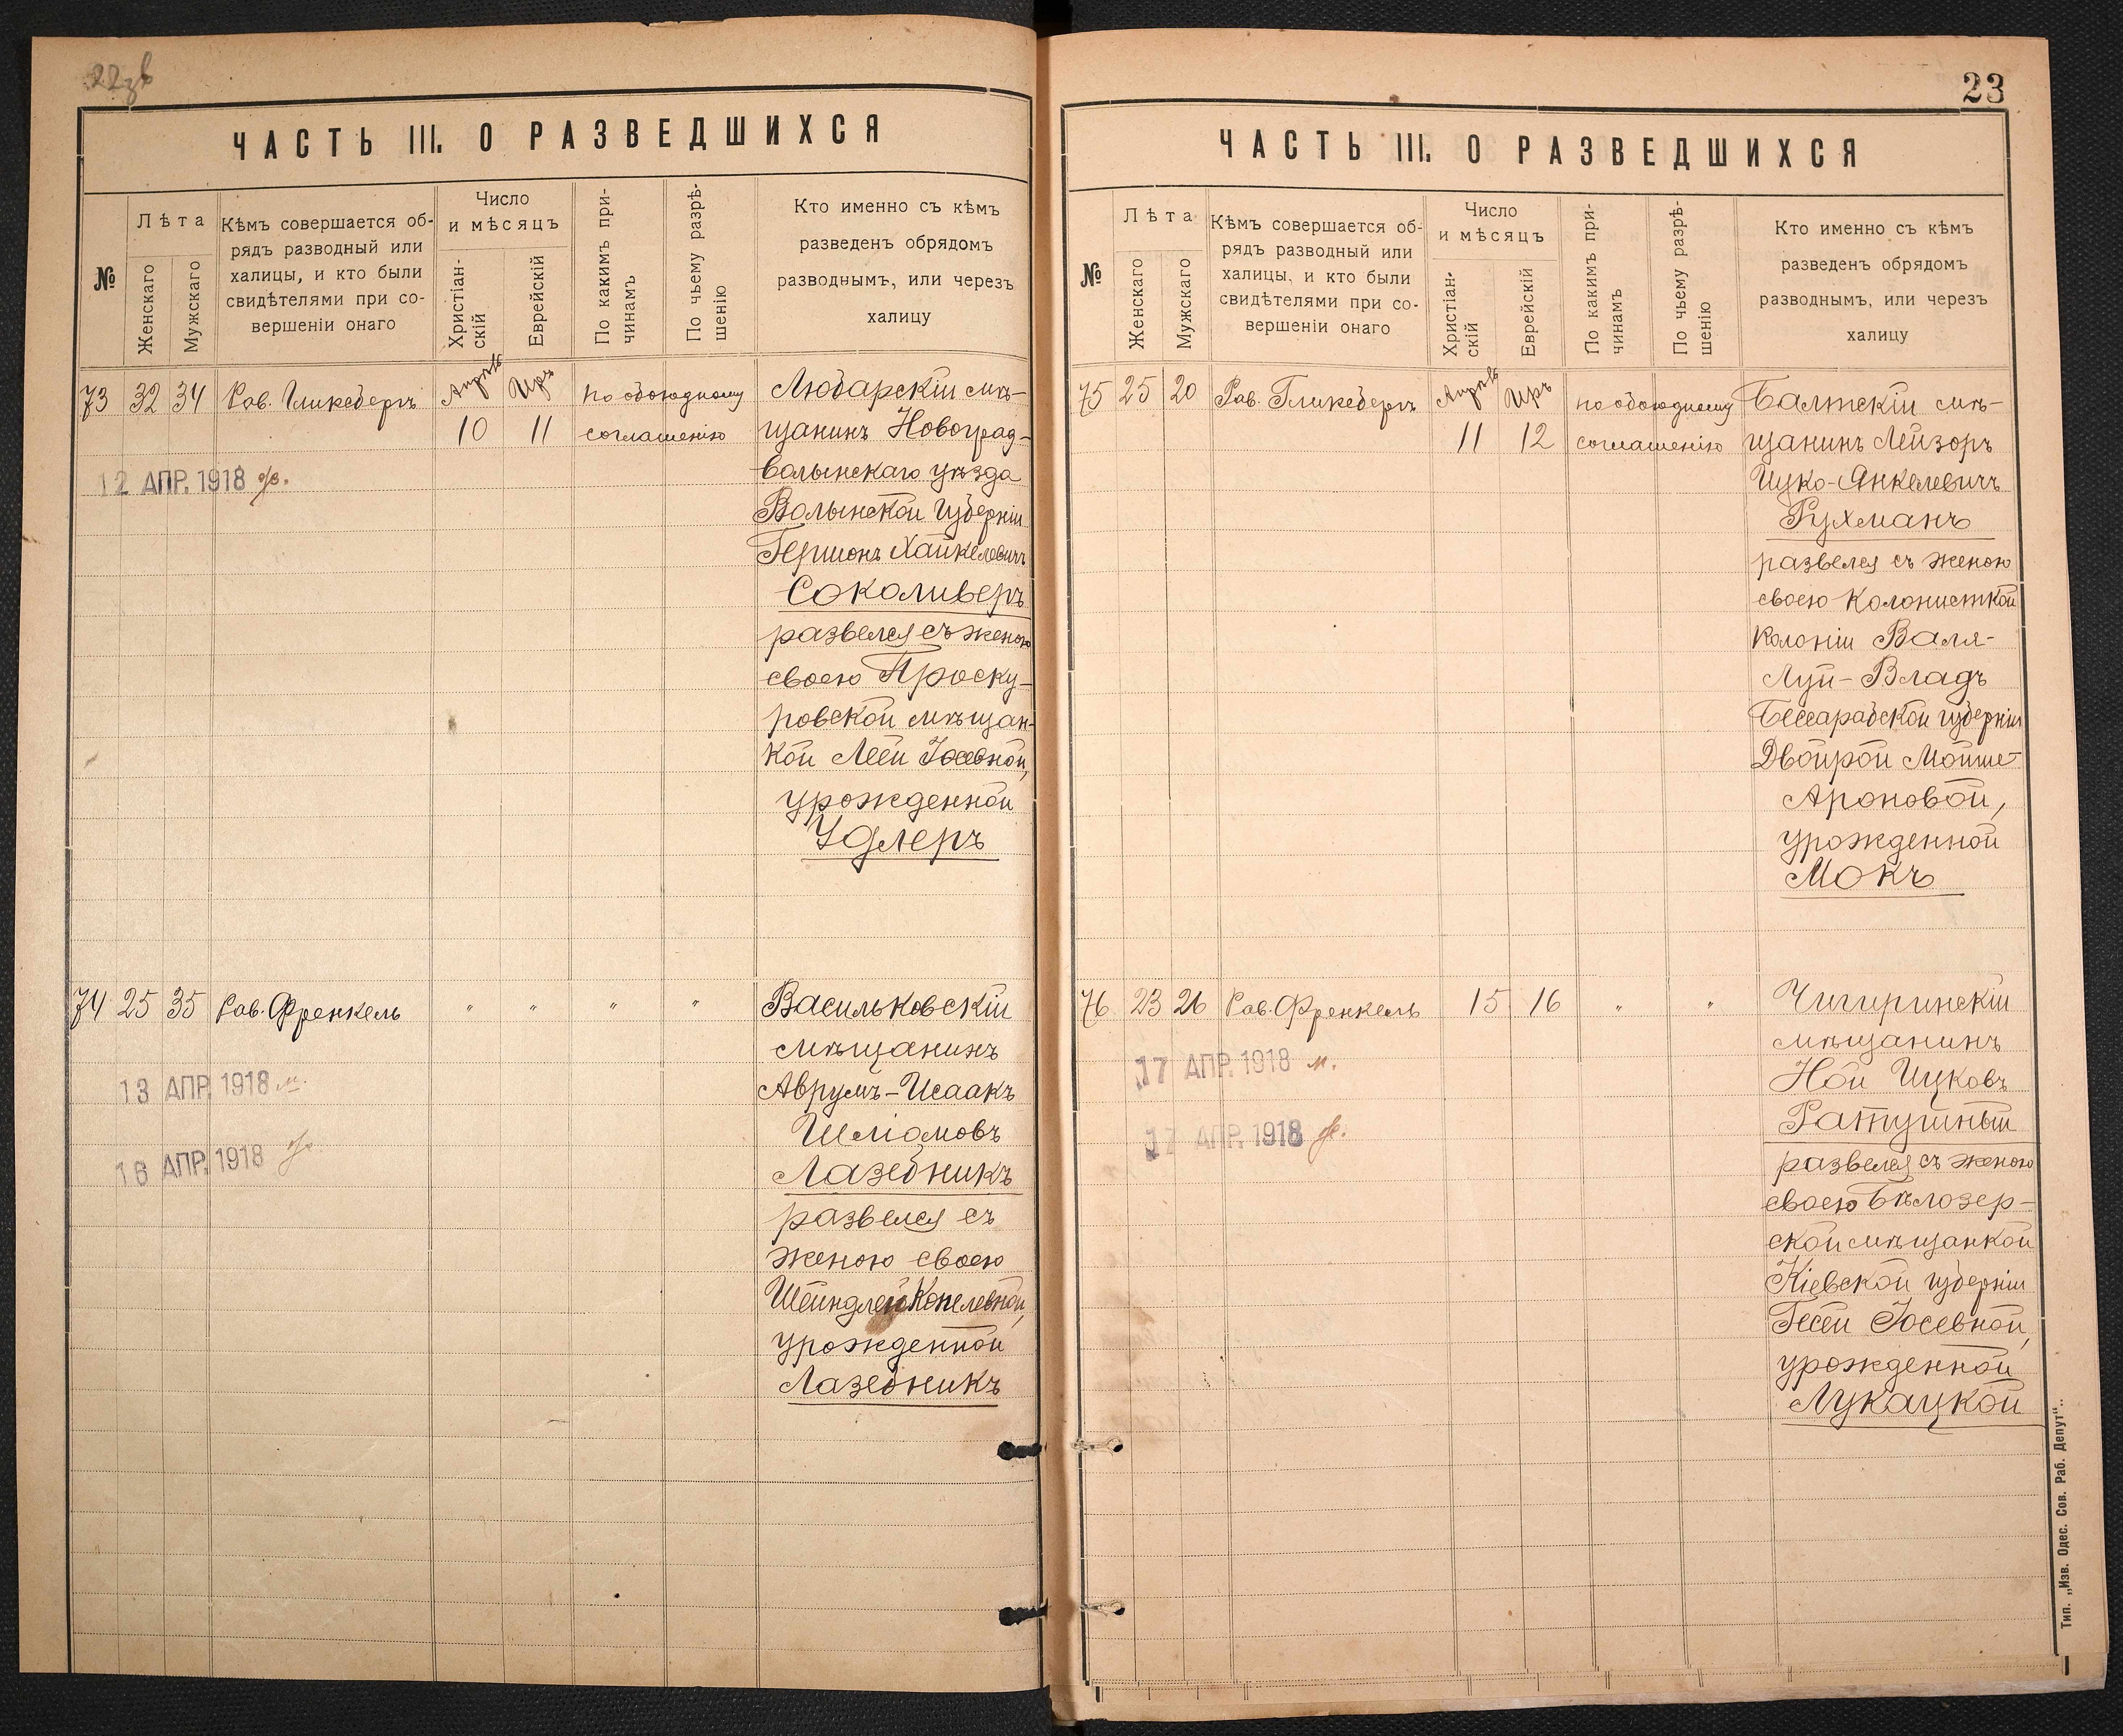 22зв
ЧАСТЬ III. О РАЗВЕДШИХСЯ
№
Лѣта
Женскаго
Мужскаго
Кѣмъ совершается об-
рядъ разводный или
халицы, и кто были
свидѣтелями при со-
вершеніи онаго
Число
и мѣсяцъ
Христіан-
скій
Еврейскій
По какимъ при-
чинамъ
По чьему разрѣ-
шенію
Кто именно съ кѣмъ
разведенъ обрядомъ
разводнымъ, или черезъ
халицу
73 32 34 Рав. Гликсбергъ Апрѣль Иръ по обоюдному
10 11 соглашенію
Любарскій мѣ-
щанинъ Новоград-
волынскаго уѣзда
Волынской губерніи
Гершонъ Хайкелевичъ
Соколиверъ
развелся съ женою
своею Проску-
ровской мѣщан-
кой Леей Іосевной,
урожденной
Удлеръ
12 АПР. 1918
74 25 35 Рав. Френкель " " " "
Васильковскій
мѣщанинъ
Аврумъ-Исаакъ
Шліомовъ
Лазебникъ
развелся съ
женою своею
Шейндлей Копелевной,
урожденной
Лазебникъ
13 АПР. 1918 м.
16 АПР. 1918
23
ЧАСТЬ III. О РАЗВЕДШИХСЯ
№
Лѣта
Женскаго
Мужскаго
Кѣмъ совершается об-
рядъ разводный или
халицы, и кто были
свидѣтелями при со-
вершеніи онаго
Число
и мѣсяцъ
Христіан-
скій
Еврейскій
По какимъ при-
чинамъ
По чьему разрѣ-
шенію
Кто именно съ кѣмъ
разведенъ обрядомъ
разводнымъ, или черезъ
халицу
75 25 20 Рав. Гликсбергъ Апрѣль Иръ по обоюдному
11 12 соглашенію
Балтскій мѣ-
щанинъ Лейзоръ
Ицко-Янкелевичъ
Рухманъ
развелся съ женою
своею колонисткой
колоніи Валя-
Луй-Владъ
Бессарабской губерніи
Двойрой Мойше-
Ароновой,
урожденной
Мокъ
76 23 26 Рав. Френкель 15 16 " "
Чигиринскій
мѣщанинъ
Ной Ицковъ
Ратушный
развелся съ женою
своею Бѣлозер-
ской мѣщанкой
Кіевской губерніи
Гесей Іосевной,
урожденной
Лукацкой
17 АПР. 1918 м.
17 АПР. 1918
Тип. „Изв. Одес. Сов. Раб. Депут“..